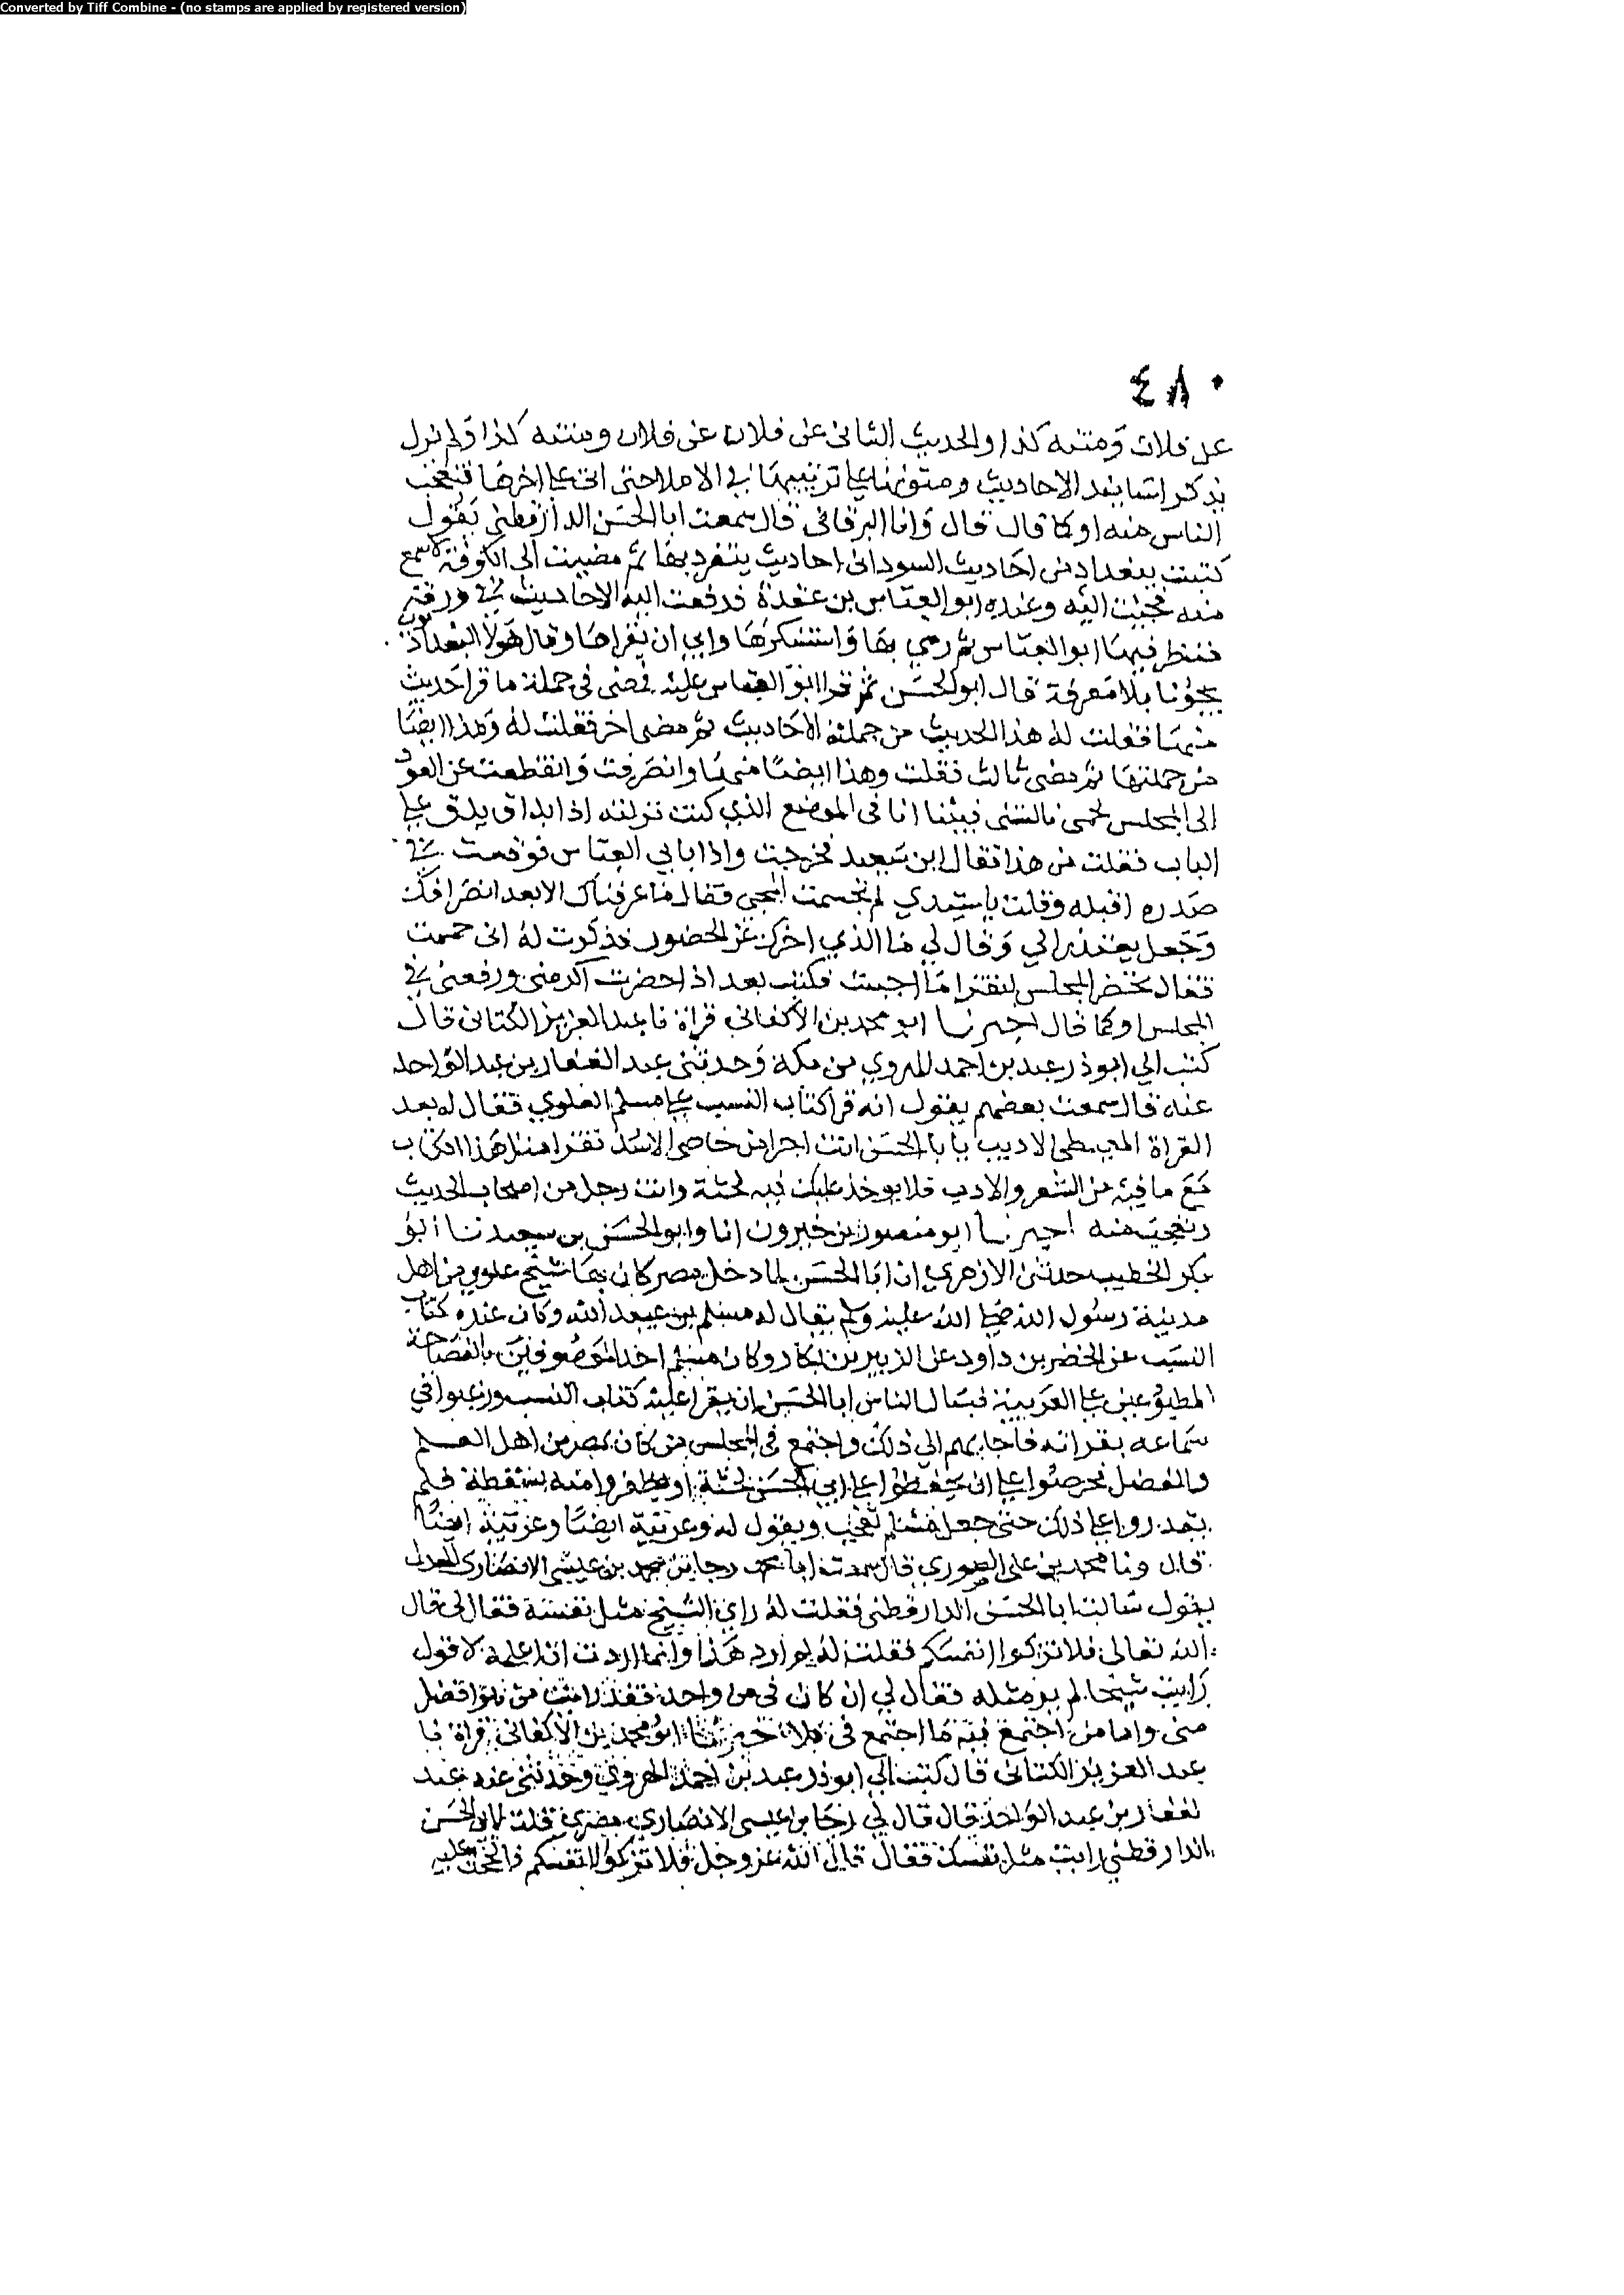 Converted by Tiff Combine - (no stamps are applied by registered version)
٤٨٠
عن فلان ومتنه كذا والحديث الثانى عن فلان عن فلان ومتنه كذا ولم يزل
يذكر اسانيد الاحاديث ومتونها على ترتيبها في الاملا حتى اتى على اخرها فتعجب
الناس منه او كما قال قال وانا البرقانى قال سمعت ابا الحسن الدارقطنى يقول
كتبت ببغداد من احاديث السودانى احاديث ينفرد بها ثم مضيت الى الكوفة لاسمع
منه فجئت اليه وعنده ابو العباس بن عقدة فدفعت اليه الاحاديث في ورقة
فنظر فيها ابو العباس ثم رمى بها واستنكرها وابى ان يقراها وقال هولا البغداذيون
يجؤنا بلا معرفة قال ابو الحسن ثم قرا ابو العباس عليه فمضى فى جملة ما قرا حديث
منها فقلت له هذا الحديث من جملة الاحاديث ثم مضى اخر فقلت له وهذا ايضا
من جملتها ثم مضى ثالث فقلت وهذا ايضا منها وانصرفت وانقطعت عن العود
الى المجلس لحمى نالتنى فبينا انا فى الموضع الذي كنت نزلته اذا بداق يدق على
الباب فقلت من هذا فقال ابن سعيد فخرجت واذا بابي العباس فوقعت في
صدره اقبله وقلت يا سيدي لم تجشمت المجى فقال ما عرفناك الا بعد انصرافك
وجعل يعتذر الي وقال لي ما الذي اخرك عن الحضور فذكرت له انى حممت
فقال تحضر المجلس لتقرا ما احببت فكنت بعد اذا حضرت اكرمنى ورفعنى في
المجلس او كما قال اخبرنا ابو محمد بن الاكفانى قراة نا عبد العزيز الكتانى قال
كتب الي ابو ذر عبد بن احمد الهروي من مكة وحدثنى عبد الغفار بن عبد الواحد
عنه قال سمعت بعضهم يقول انه قرا كتاب النسب على مسلم العلوي فقال له بعد
القراة المعيطى الاديب يا با الحسن انت اجرا من خاصى الاسد تقرا مثل هذا الكتاب
مع ما فيه من الشعر والادب فلا يوخذ عليك فيه لحنة وانت رجل من اصحاب الحديث
وتعجب منه اخبرنا ابو منصور بن خيرون انا وابو الحسن بن سعيد نا ابو
بكر الخطيب حدثنى الازهري ان ابا الحسن لما دخل مصر كان بها شيخ علوي من اهل
مدينة رسول الله صلى الله عليه وسلم يقال له مسلم بن عبيد الله وكان عنده كتاب
النسب عن الخضر بن داود عن الزبير بن بكار وكان مسلم احد الموصوفين بالفصاحة
المطبوعين على العربية فسال الناس ابا الحسن ان يقرا عليه كتاب النسب ورغبوا في
سماعه بقراته فاجابهم الي ذلك واجتمع فى المجلس من كان بمصر من اهل العلم
والفضل فحرصوا على ان يحفظوا على ابى الحسن لحنة او يظفروا منه بسقطة فلم
يقدروا على ذلك حتى جعل مسلم تعجب ويقول له وعربية ايضا وعربية ايضا
قال ونا محمد بن على الصوري قال سمعت ابا محمد رجا بن محمد بن عيسى الانصارى المعدل
يقول سالت ابا الحسن الدارقطنى فقلت له راى الشيخ مثل نفسه فقال لى قال
الله تعالى فلا تزكوا انفسكم فقلت له لم ارد هذا وانما اردت ان اعلمه لاقول
رايت شيخا لم ير مثله فقال لي ان كان فى فن واحد فقد رايت من هو افضل
منى واما من اجتمع فيه ما اجتمع فى فلا اخبرنا ابو محمد بن الاكفانى قراة نا
عبد العزيز الكتانى قال كتب الي ابو ذر عبد بن احمد الهروي وحدثنى عنه عبد
الغفار بن عبد الواحد قال قال لي رجا بن عيسى الانصاري مصري قلت لابى الحسن
الدارقطني رايت مثل نفسك فقال قال الله عز وجل فلا تزكوا انفسكم فالححت عليه